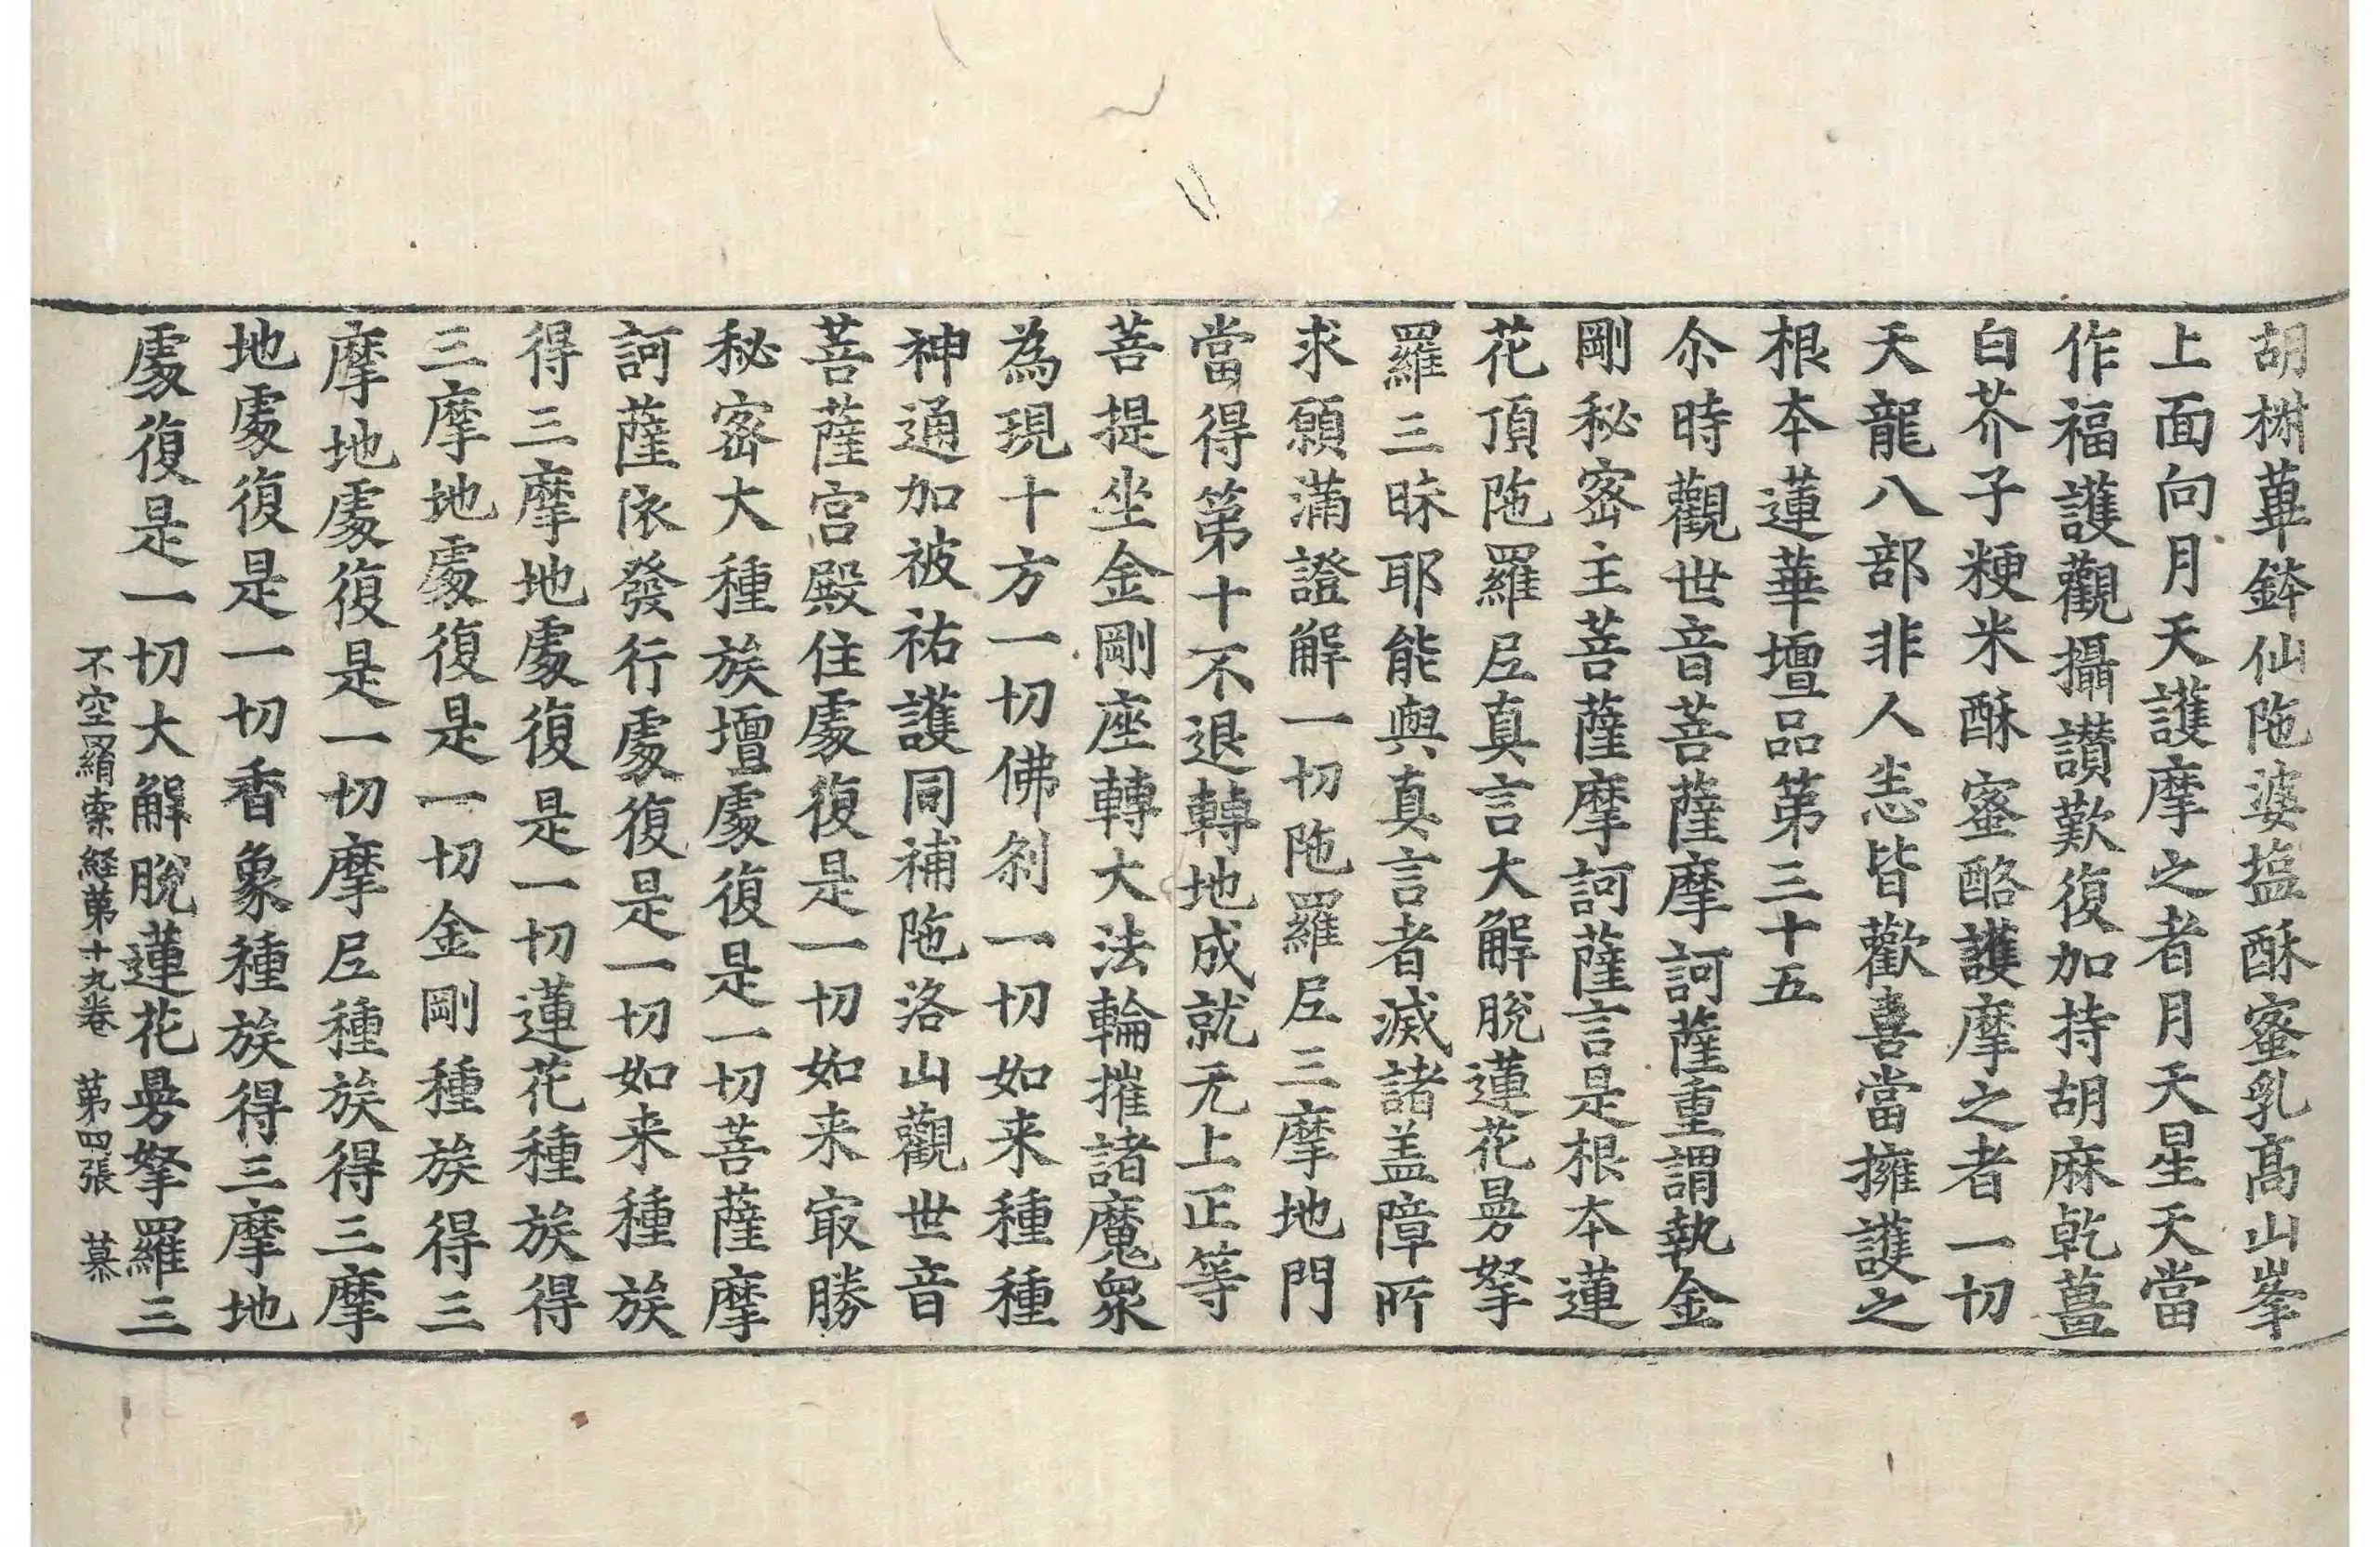 胡樹華鉢仙陁婆塩酥蜜乳髙山峯
上面向月天護摩之者月天星天當
作福護觀攝讃歎復加持胡麻乾薑
白芥子粳米酥蜜酪護摩之者一切
天龍八部非人恙皆歡喜當擁護之
根本蓮華壇品第三十五
尒時觀世音菩薩摩訶薩重謂執金
剛秘密主菩薩摩訶薩言是根本蓮
花頂陁羅𡰱真言大解脫蓮花曼拏
羅三昧耶能與真言者滅諸盖障所
求願滿證解一切陁羅𡰱三摩地門
當得第十不退轉地成就无上正等
菩提坐金剛座轉大法輪摧諸魔衆
為現十方一切佛刹一切如来種種
神通加被祐護同補陁洛山觀世音
菩薩宮殿住處復是一切如来㝡勝
秘密大種族壇處復是一切菩薩摩
訶薩依發行處復是一切如来種族
得三摩地處復是一切蓮花種族得
三摩地處復是一切金剛種族得三
摩地處復是一切摩𡰱種族得三摩
地處復是一切香象種族得三摩地
處復是一切大解脫蓮花曼拏羅三
不空羂索経第十九卷 第四張 慕